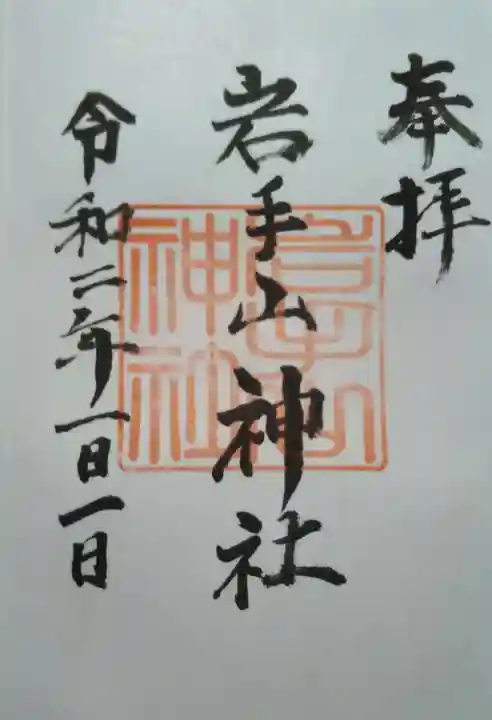 奉拝
岩手山神社
岩手山神社
令和二年一日一日